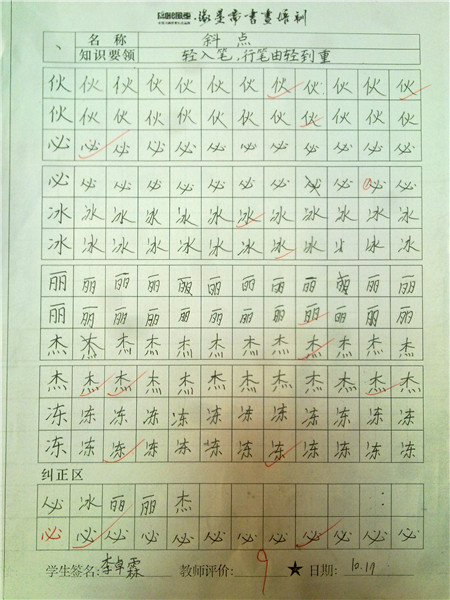 书画培训
、 名称 斜点
知识要领 轻入笔,行笔由轻到重
伙伙伙伙伙伙伙伙伙伙伙伙
伙伙伙伙伙伙伙伙伙伙伙伙
必必必必必必必必必必必必
必必必必必必必必必必必必
冰冰冰冰冰冰冰冰冰冰冰冰
冰冰冰冰冰冰冰冰冰冰冰冰
丽丽丽丽丽丽丽丽丽丽丽丽
丽丽丽丽丽丽丽丽丽丽丽丽
杰杰杰杰杰杰杰杰杰杰杰杰
杰杰杰杰杰杰杰杰杰杰杰杰
冻冻冻冻冻冻冻冻冻冻冻冻
冻冻冻冻冻冻冻冻冻冻冻冻
纠正区
必冰丽丽杰
必必必必必必必必必必必必
学生签名:李卓霖 教师评价: 9 ★ 日期: 10.17